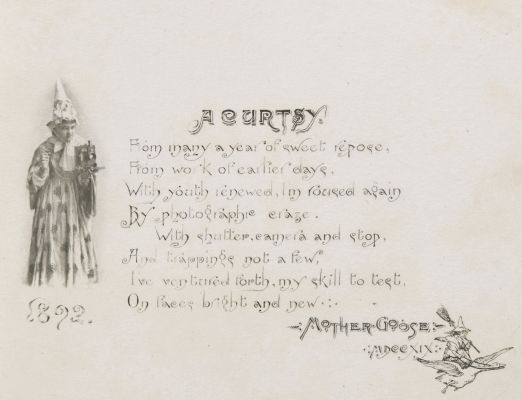 A CURTSY.
From many a year of sweet repose,
From work of earlier days,
With youth renewed, I'm roused again
By photographic craze.
With shutter, camera and stop,
And trappings not a few,
I've ventured forth, my skill to test,
On faces bright and new.
1892.
MOTHER GOOSE
MDCCXIX